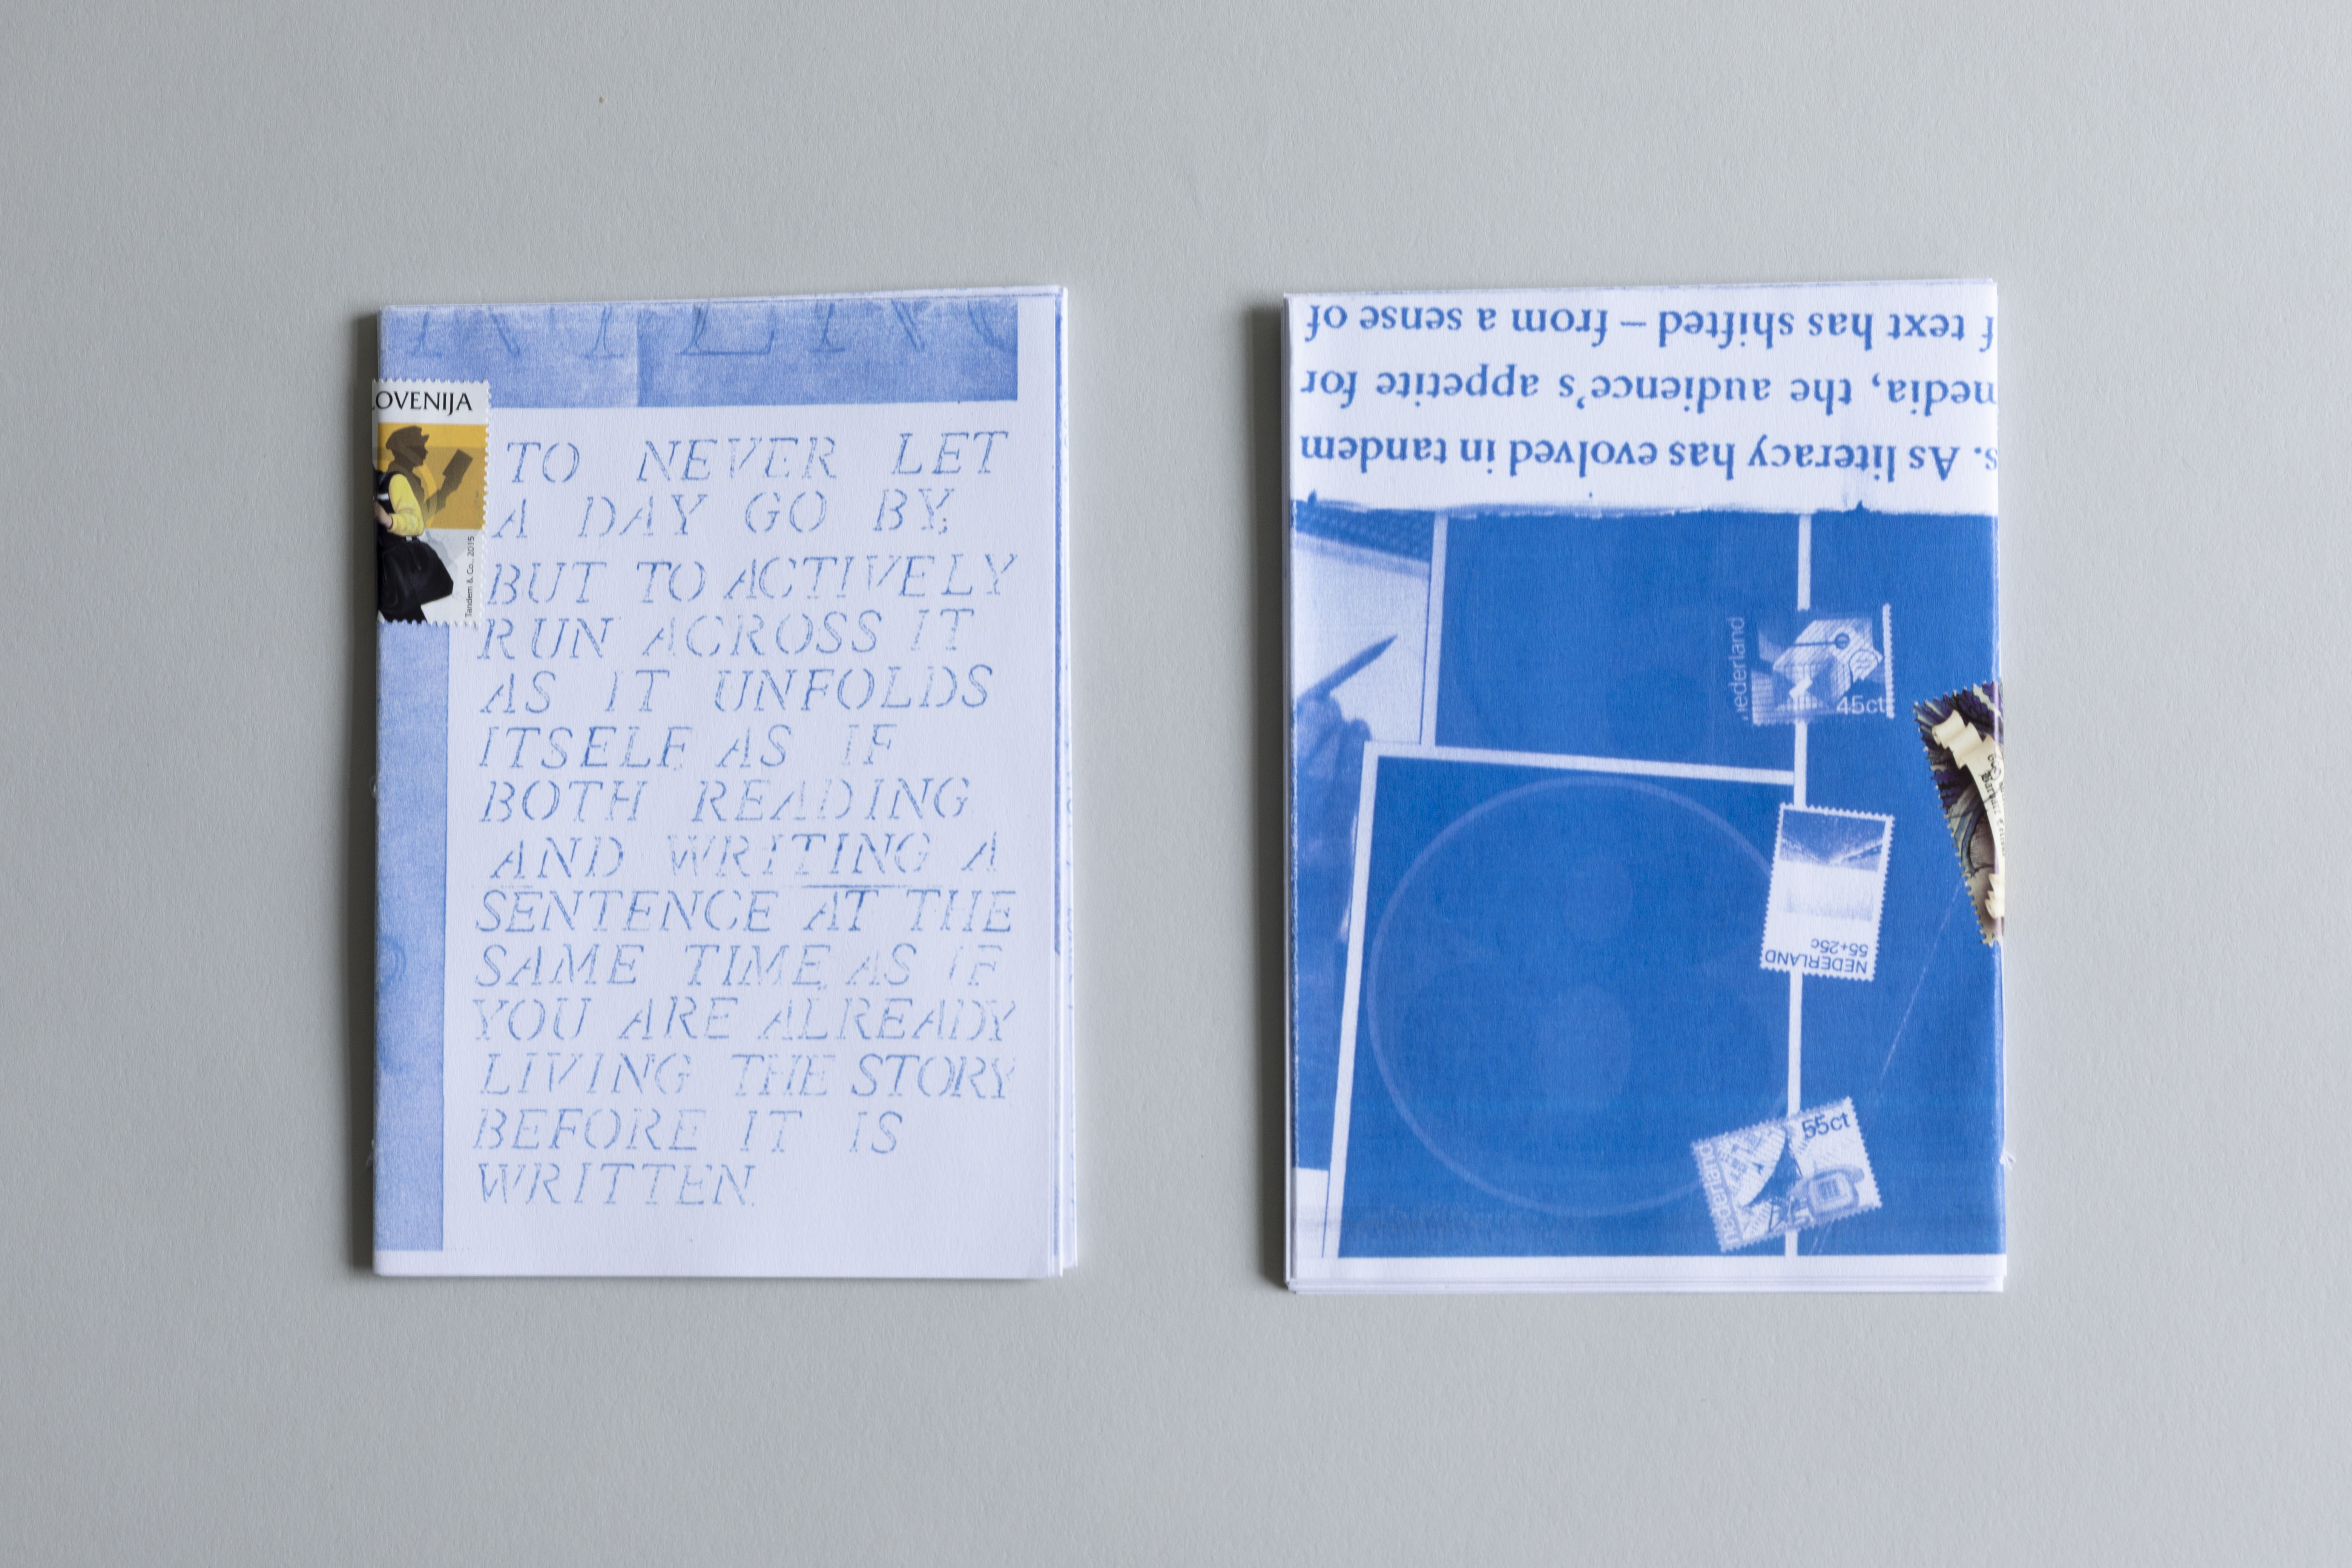 OVENIJA
Tandem & Co., 2015
TO NEVER LET
A DAY GO BY,
BUT TO ACTIVELY
RUN ACROSS IT
AS IT UNFOLDS
ITSELF, AS IF
BOTH READING
AND WRITING A
SENTENCE AT THE
SAME TIME, AS IF
YOU ARE ALREADY
LIVING THE STORY
BEFORE IT IS
WRITTEN.
s. As literacy has evolved in tandem
media, the audience's appetite for
f text has shifted – from a sense of
nederland
45ct
NEDERLAND
55+25c
55ct
nederland